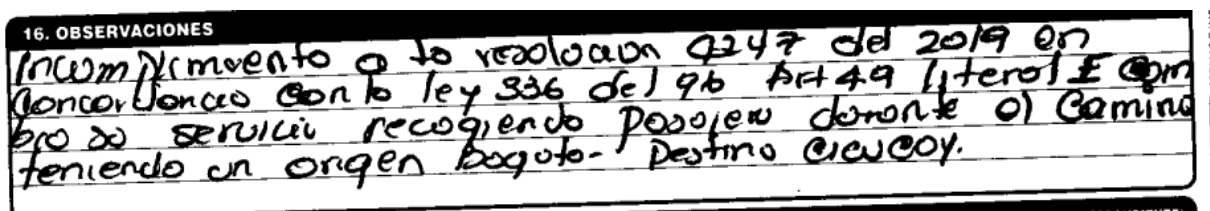 16. OBSERVACIONES
Incumplimiento a la resolucion 4247 del 2019 en
concordancia con la ley 336 del 96 Art 49 literal E Cam
bia su servicio recogiendo pasajero durante el Camino
teniendo un origen Bogota- Destino